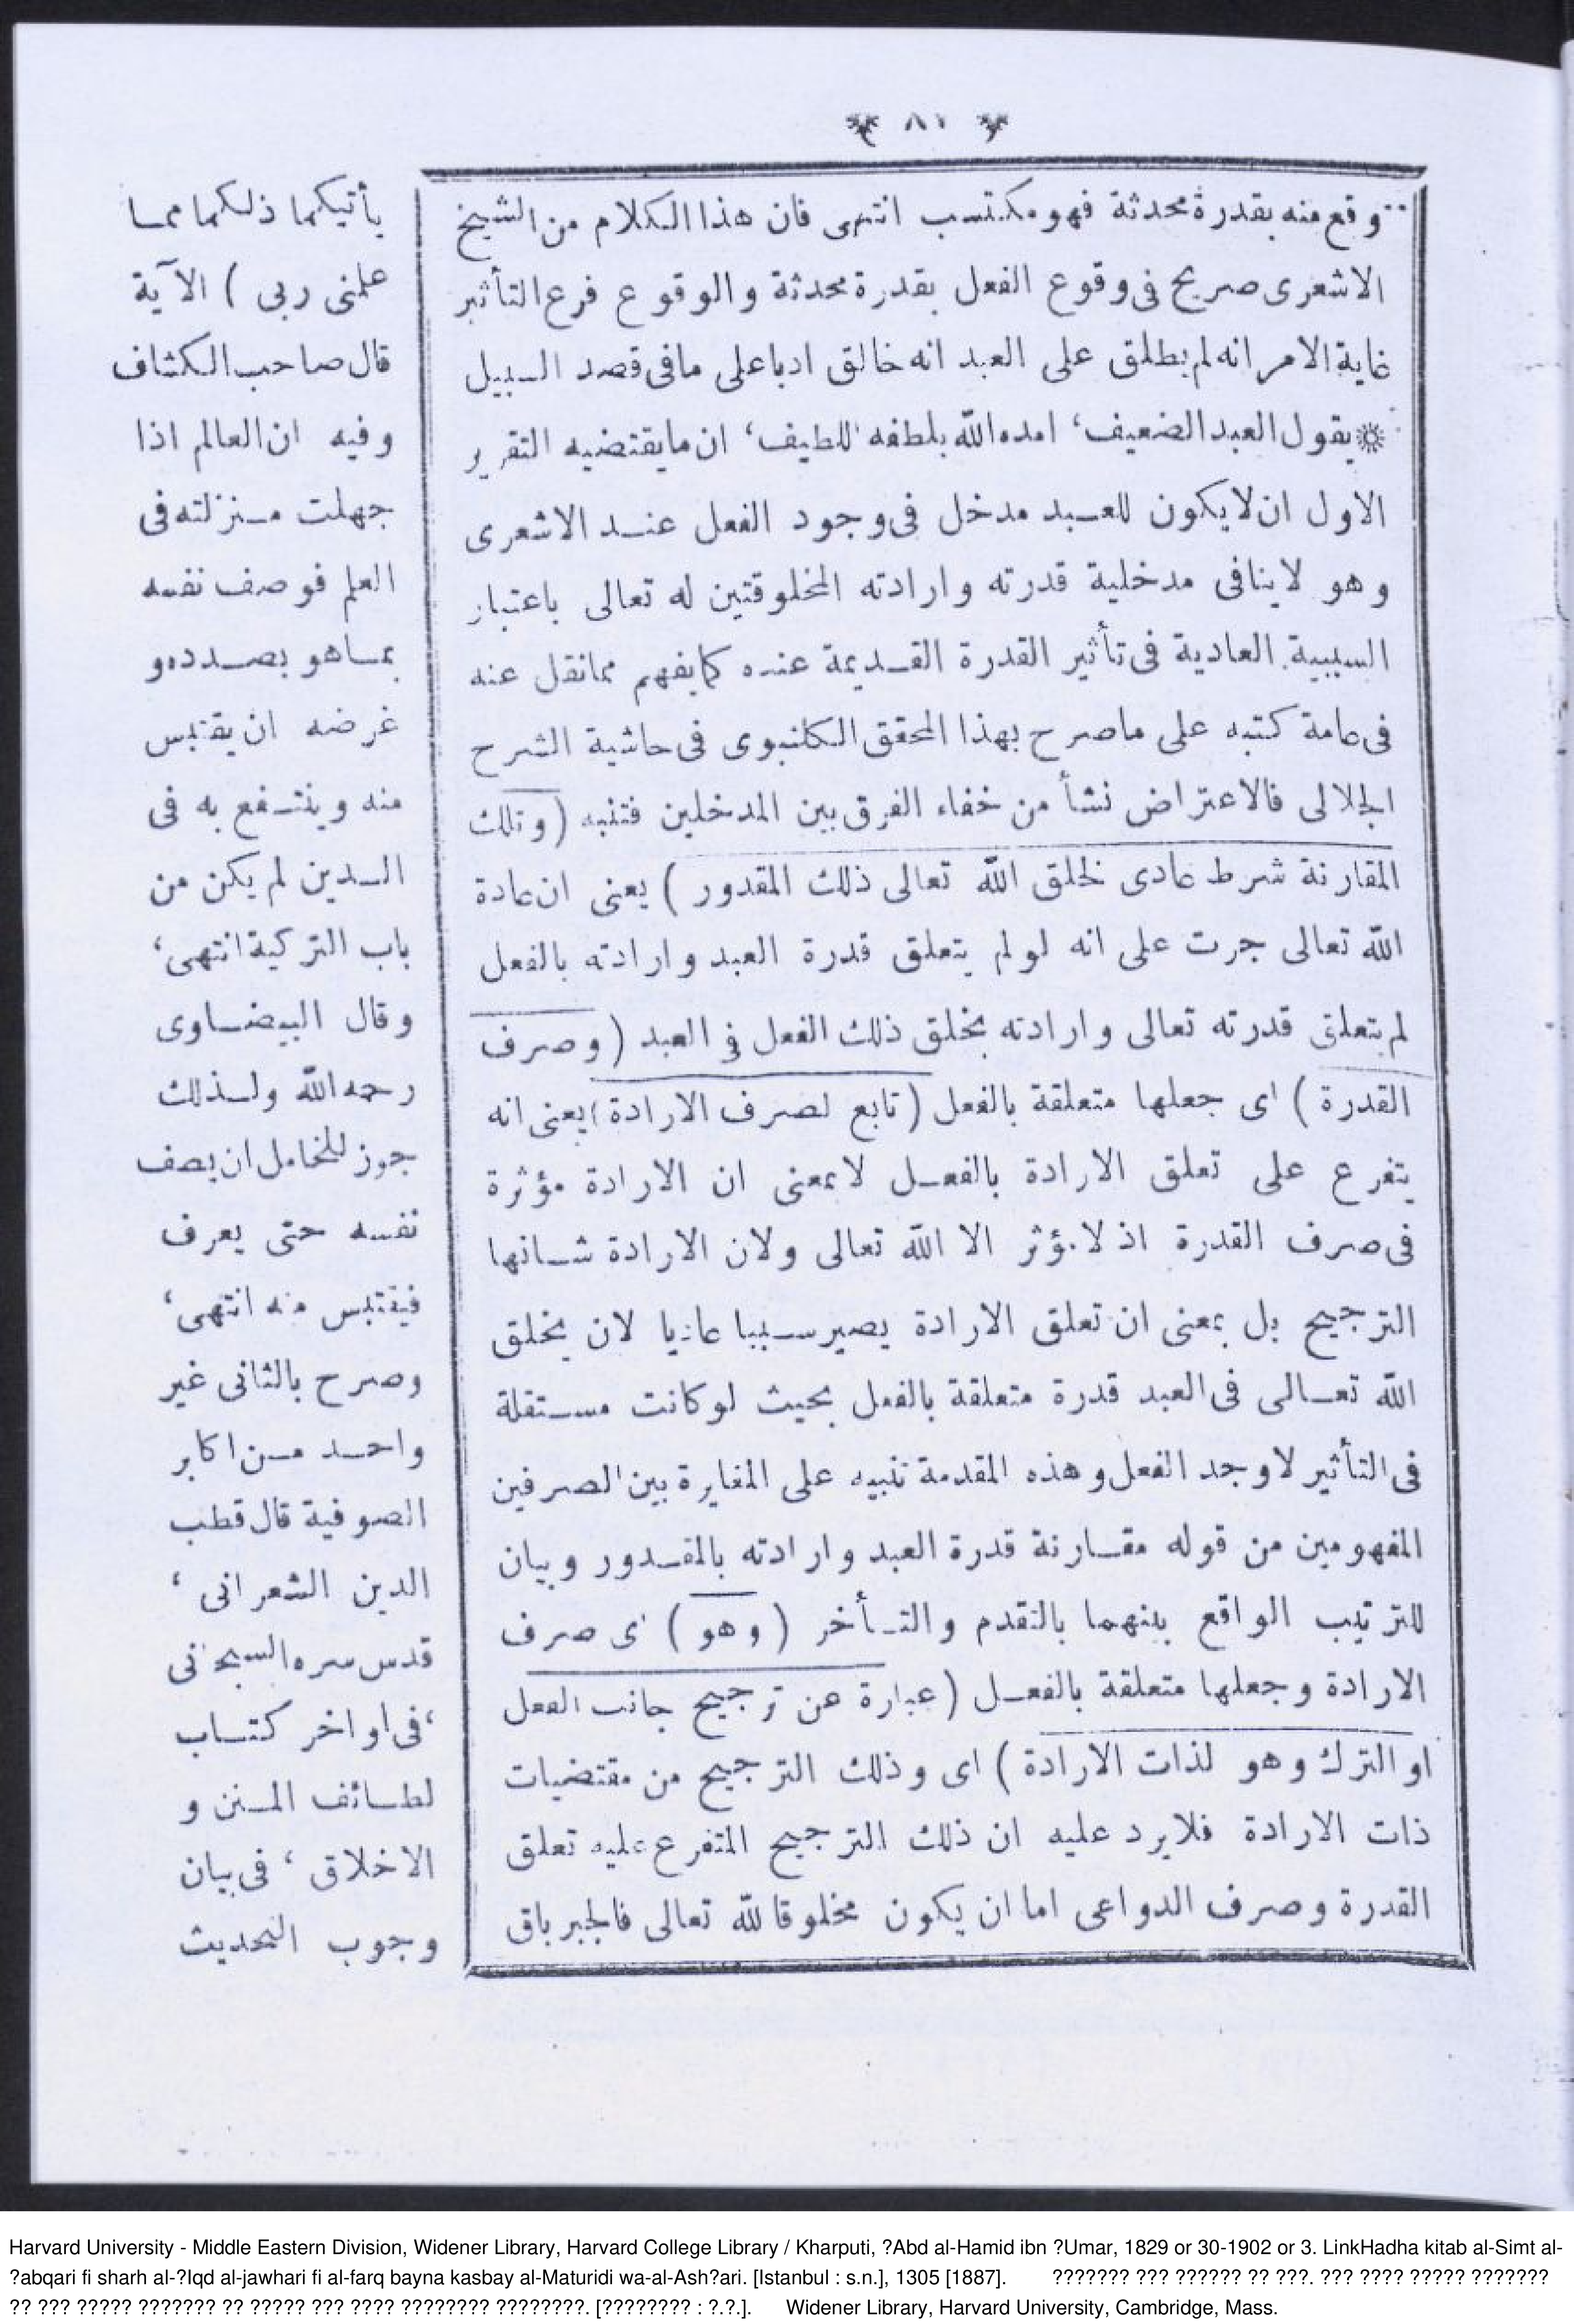 ٨١
وقع منه بقدرة محدثة فهو مكتسب انتهى فان هذا الكلام من الشيخ
الاشعرى صريح فى وقوع الفعل بقدرة محدثة والوقوع فرع التأثير
غاية الامر انه لم يطلق على العبد انه خالق ادبا على مافى قصد السبيل
يقول العبد الضعيف، امده الله بلطفه اللطيف، ان مايقتضيه التقرير
الاول ان لا يكون للعبد مدخل فى وجود الفعل عند الاشعرى
وهو لاينافى مدخلية قدرته وارادته المخلوقتين له تعالى باعتبار
السببية العادية فى تأثير القدرة القديمة عنده كمايفهم ممانقل عنه
فى عامة كتبه على ماصرح بهذا المحقق الكلنبوى فى حاشية الشرح
الجلالى فالاعتراض نشأ من خفاء الفرق بين المدخلين فتنبه (وتلك
المقارنة شرط عادى لخلق الله تعالى ذلك المقدور) يعنى ان عادة
الله تعالى جرت على انه لو لم يتعلق قدرة العبد وارادته بالفعل
لم يتعلق قدرته تعالى وارادته بخلق ذلك الفعل فى العبد (وصرف
القدرة) اى جعلها متعلقة بالفعل (تابع لصرف الارادة) يعنى انه
يتفرع على تعلق الارادة بالفعل لا بمعنى ان الارادة مؤثرة
فى صرف القدرة اذ لا يؤثر الا الله تعالى ولان الارادة شانها
الترجيح بل بمعنى ان تعلق الارادة يصير سببا عاديا لان يخلق
الله تعالى فى العبد قدرة متعلقة بالفعل بحيث لو كانت مستقلة
فى التأثير لاوجد الفعل وهذه المقدمة تنبيه على المغايرة بين الصرفين
المفهومين من قوله مقارنة قدرة العبد وارادته بالمقدور وبيان
للترتيب الواقع بينهما بالتقدم والتأخر (وهو) اى صرف
الارادة وجعلها متعلقة بالفعل (عبارة عن ترجيح جانب الفعل
او الترك وهو لذات الارادة) اى وذلك الترجيح من مقتضيات
ذات الارادة فلايرد عليه ان ذلك الترجيح المتفرع عليه تعلق
القدرة وصرف الدواعى اما ان يكون مخلوقا لله تعالى فالجبر باق
يأتيكما ذلكما مما
علمنى ربى) الآية
قال صاحب الكشاف
وفيه ان العالم اذا
جهلت منزلته فى
العلم فوصف نفسه
بماهو بصدده و
غرضه ان يقتبس
منه وينتفع به فى
الدين لم يكن من
باب التزكية انتهى،
وقال البيضاوى
رحمه الله ولذلك
جوز للخامل ان يصف
نفسه حتى يعرف
فيقتبس منه انتهى،
وصرح بالثانى غير
واحد من اكابر
الصوفية قال قطب
الدين الشعرانى،
قدس سره السبحانى
،فى اواخر كتاب
لطائف المنن و
الاخلاق، فى بيان
وجوب التحديث
Harvard University - Middle Eastern Division, Widener Library, Harvard College Library / Kharputi, ?Abd al-Hamid ibn ?Umar, 1829 or 30-1902 or 3. LinkHadha kitab al-Simt al-
?abqari fi sharh al-?Iqd al-jawhari fi al-farq bayna kasbay al-Maturidi wa-al-Ash?ari. [Istanbul : s.n.], 1305 [1887]. ??????? ??? ?????? ?? ???. ??? ???? ????? ???????
?? ??? ????? ??????? ?? ????? ??? ???? ???????? ????????. [???????? : ?.?.]. Widener Library, Harvard University, Cambridge, Mass.